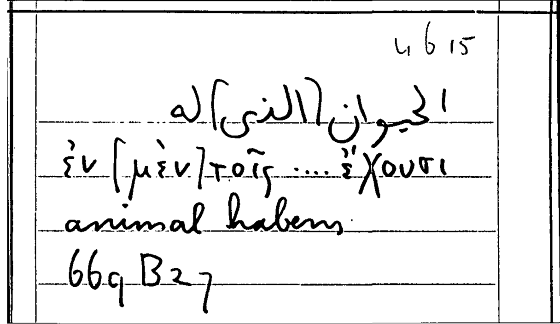 4 6 15
الحيوان [الذى] له
ἐν [μὲν] τοῖς .... ἔχουσι
animal habens
669 B27